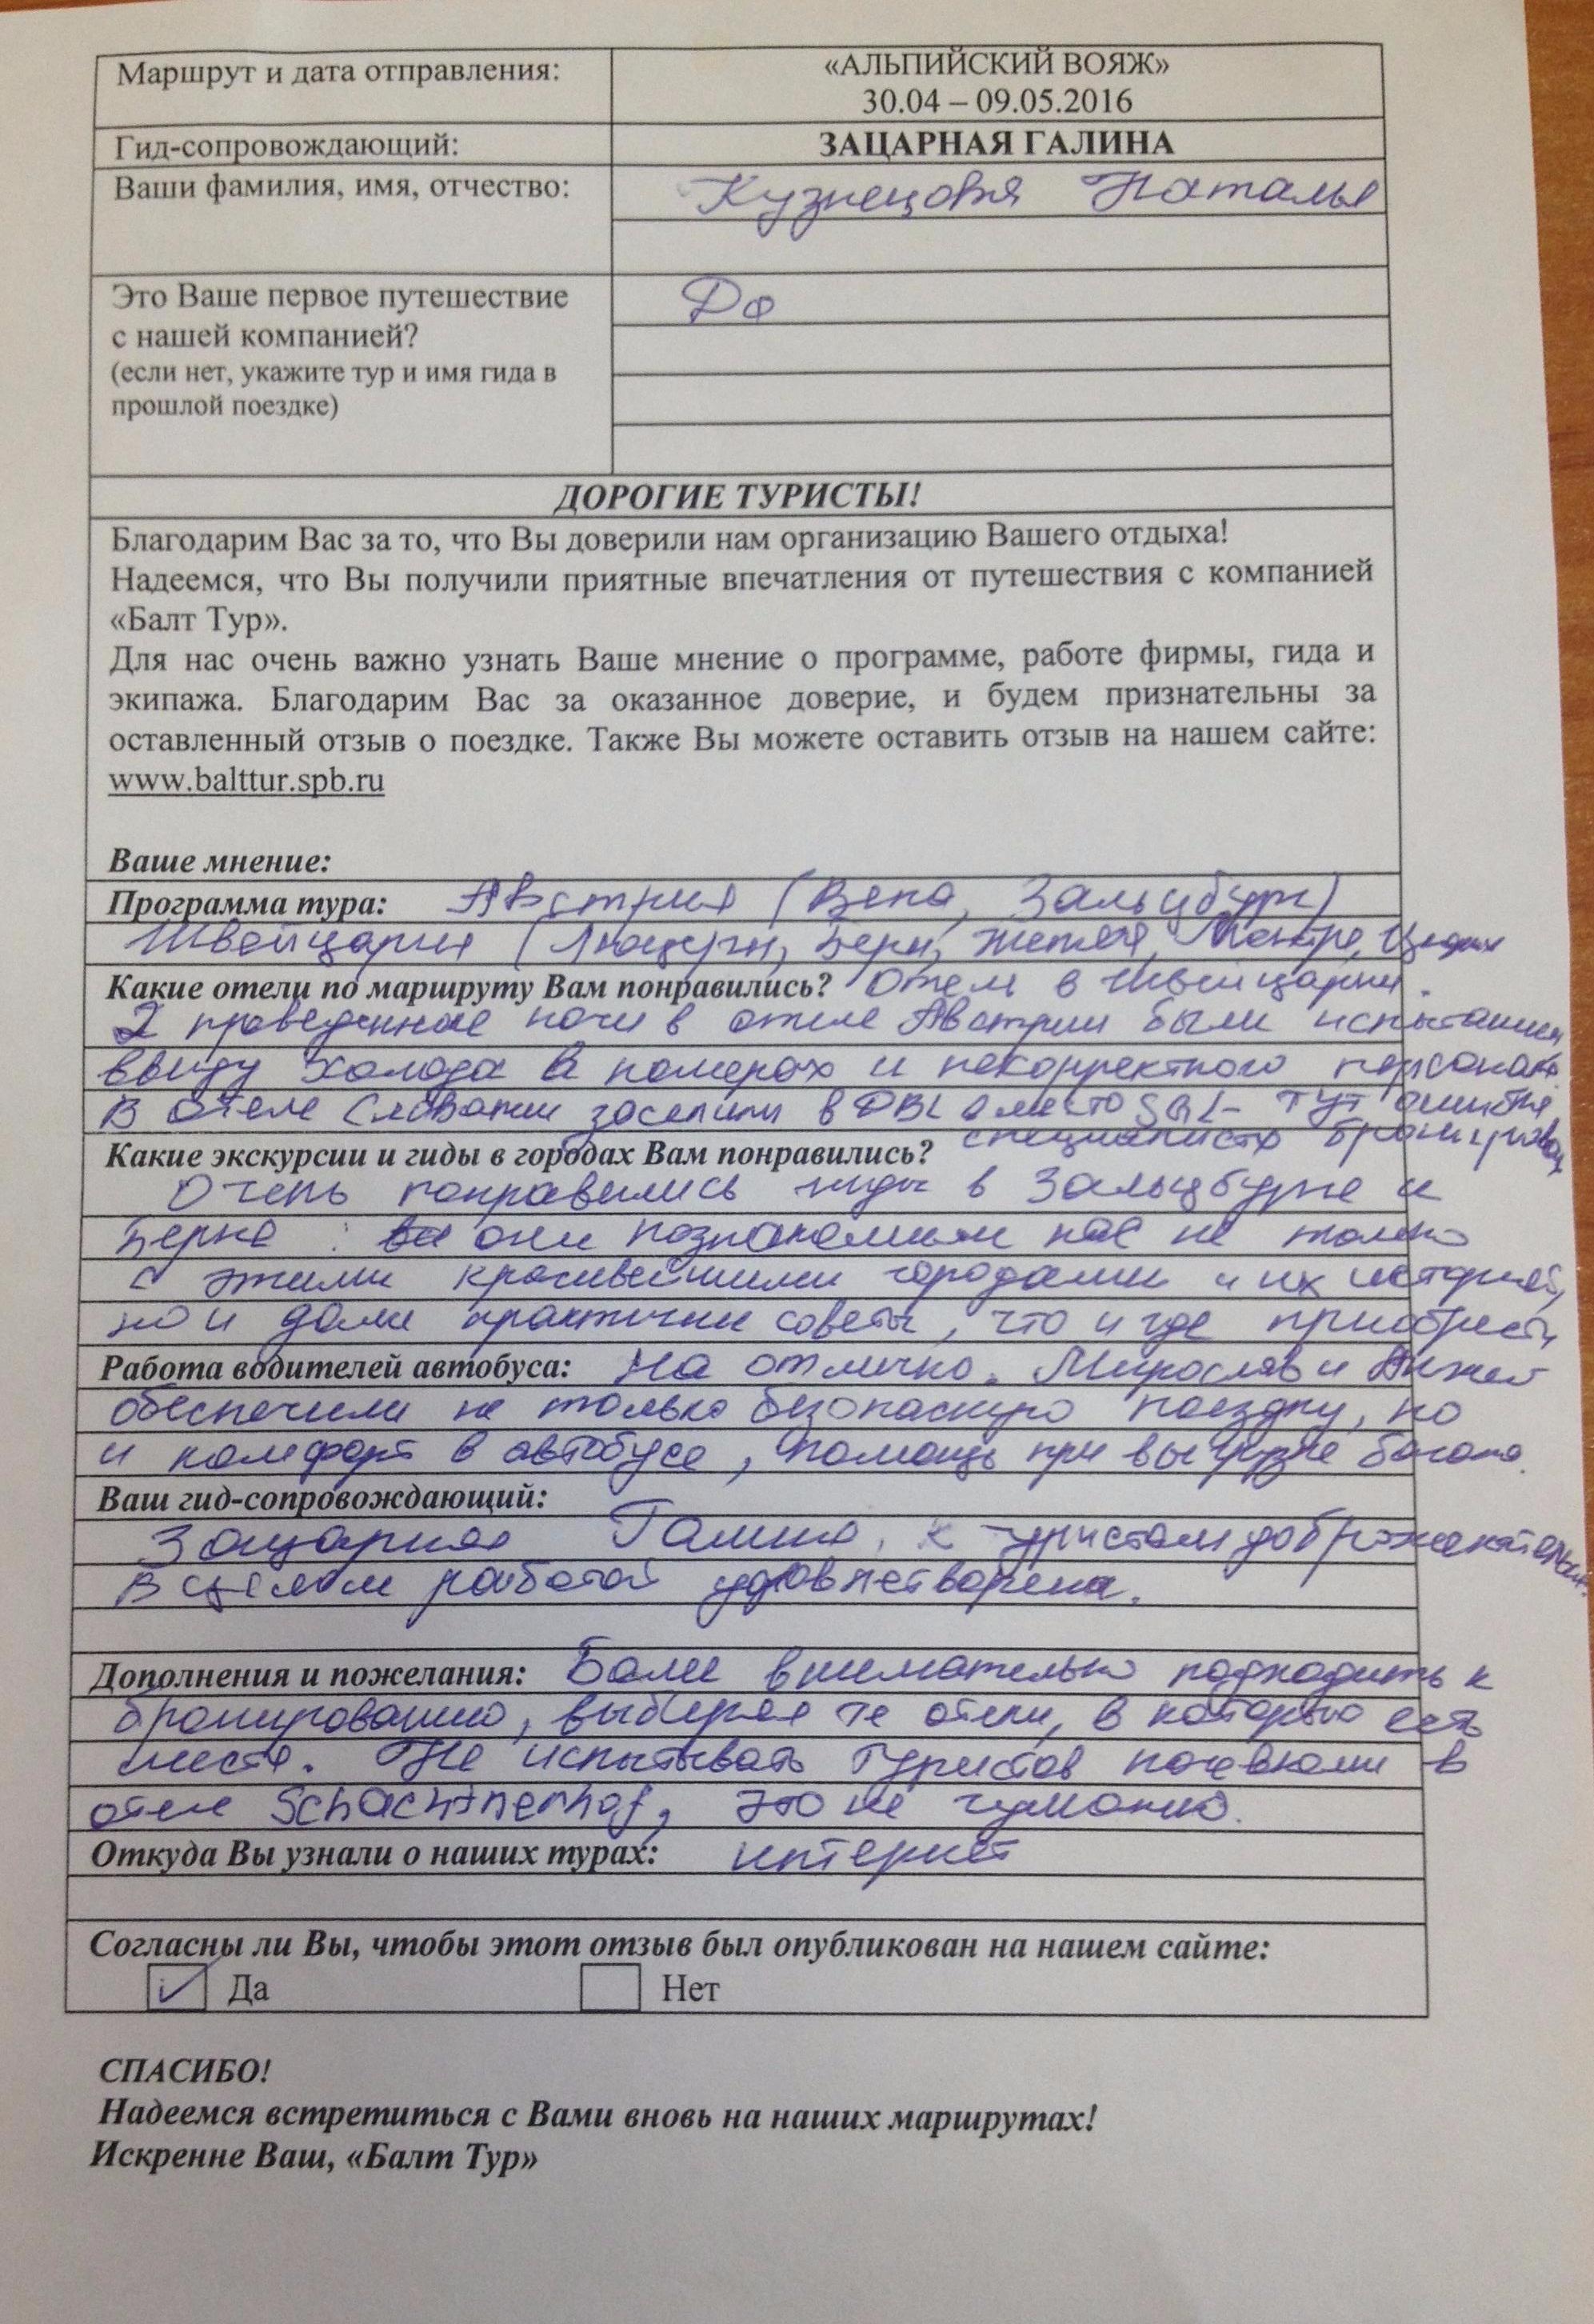 Маршрут и дата отправления:
«АЛЬПИЙСКИЙ ВОЯЖ»
30.04 – 09.05.2016
Гид-сопровождающий:
ЗАЦАРНАЯ ГАЛИНА
Ваши фамилия, имя, отчество:
Кузнецова Наталья
Это Ваше первое путешествие
с нашей компанией?
(если нет, укажите тур и имя гида в
прошлой поездке)
Да
ДОРОГИЕ ТУРИСТЫ!
Благодарим Вас за то, что Вы доверили нам организацию Вашего отдыха!
Надеемся, что Вы получили приятные впечатления от путешествия с компанией
«Балт Тур».
Для нас очень важно узнать Ваше мнение о программе, работе фирмы, гида и
экипажа. Благодарим Вас за оказанное доверие, и будем признательны за
оставленный отзыв о поездке. Также Вы можете оставить отзыв на нашем сайте:
www.balttur.spb.ru
Ваше мнение:
Программа тура: Австрия (Вена, Зальцбург)
Швейцария (Люцерн, Берн, Женева, Монтре,
Какие отели по маршруту Вам понравились? Отель в Швейцарии.
2 проведенные ночи в отеле Австрии были испытанием
ввиду холода в номерах и некорректного персонала.
В отеле Словакии заселили в DBL вместо SGL - тут ошибка
специалиста бронирован
Какие экскурсии и гиды в городах Вам понравились?
Очень понравились гиды в Зальцбурге и
Берне : они познакомили нас не только
с этими красивейшими городами и их историей,
но и дали практичные советы, что и где приобрести
Работа водителей автобуса: На отлично. Мирослав и Анжей
обеспечили не только безопасную поездку, но
и комфорт в автобусе, помощь при выгрузке багажа.
Ваш гид-сопровождающий:
Зацарная Галина, к туристам доброжелательна.
В целом работой удовлетворена.
Дополнения и пожелания: Более внимательно подходить к
бронированию, выбирая те отели, в которых есть
места. Не испытывать туристов ночевками в
отеле Schachtnerhof, это не гуманно.
Откуда Вы узнали о наших турах: интернет
Согласны ли Вы, чтобы этот отзыв был опубликован на нашем сайте:
Да Нет
СПАСИБО!
Надеемся встретиться с Вами вновь на наших маршрутах!
Искренне Ваш, «Балт Тур»